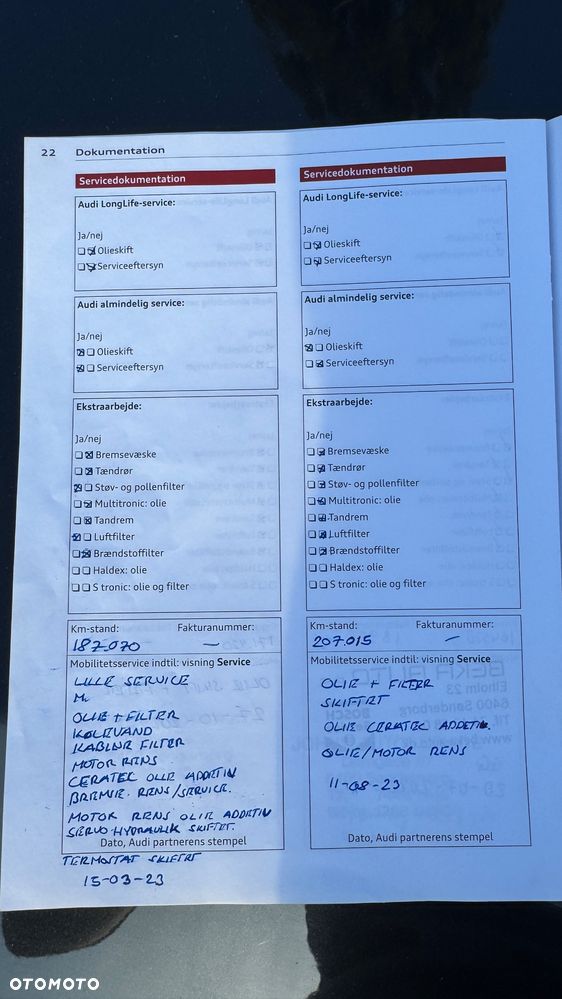 22 Dokumentation
Servicedokumentation
Audi LongLife-service:
Ja/nej
Olieskift
Serviceeftersyn
Audi almindelig service:
Ja/nej
Olieskift
Serviceeftersyn
Ekstraarbejde:
Ja/nej
Bremsevæske
Tændrør
Støv- og pollenfilter
Multitronic: olie
Tandrem
Luftfilter
Brændstoffilter
Haldex: olie
S tronic: olie og filter
Km-stand: Fakturanummer:
187.070 —
Mobilitetsservice indtil: visning Service
LILLE SERVICE
OLIE + FILTER
KØLEVAND
KABINE FILTER
MOTOR RENS
CERATEC OLIE ADDETIV
BREMSE RENS/SERVICE.
MOTOR RENS OLIE ADDETIV
SERVO HYDRAULIK SKIFTET.
Dato, Audi partnerens stempel
TERMOSTAT SKIFTET
15-03-23
Servicedokumentation
Audi LongLife-service:
Ja/nej
Olieskift
Serviceeftersyn
Audi almindelig service:
Ja/nej
Olieskift
Serviceeftersyn
Ekstraarbejde:
Ja/nej
Bremsevæske
Tændrør
Støv- og pollenfilter
Multitronic: olie
Tandrem
Luftfilter
Brændstoffilter
Haldex: olie
S tronic: olie og filter
Km-stand: Fakturanummer:
207.015 —
Mobilitetsservice indtil: visning Service
OLIE + FILTER
SKIFTET
OLIE CERATEC ADDETIV.
OLIE/MOTOR RENS
11-08-23
Dato, Audi partnerens stempel
OTOMOTO